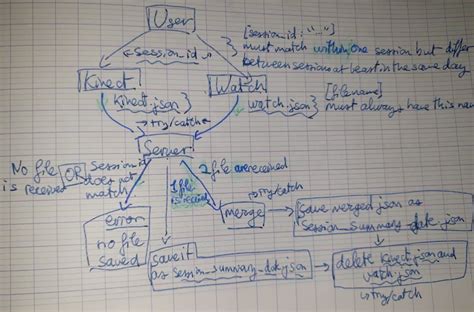 User
{session_id : "...."}
must match within one session but differ
between session at least in the same day
<session_id>
Kinect
Watch
kinect.json}
watch.json}
[filename]
must always have this
→try/catch
Server
No file
is received
OR
session_id
does not
match
1 file
is received
2 file are received
→try/catch
error
no file
saved
merge
save merged json as
session_summary_date.json
save it
as session_summary_date.json
delete kinect.json and
watch.json
→try/catch